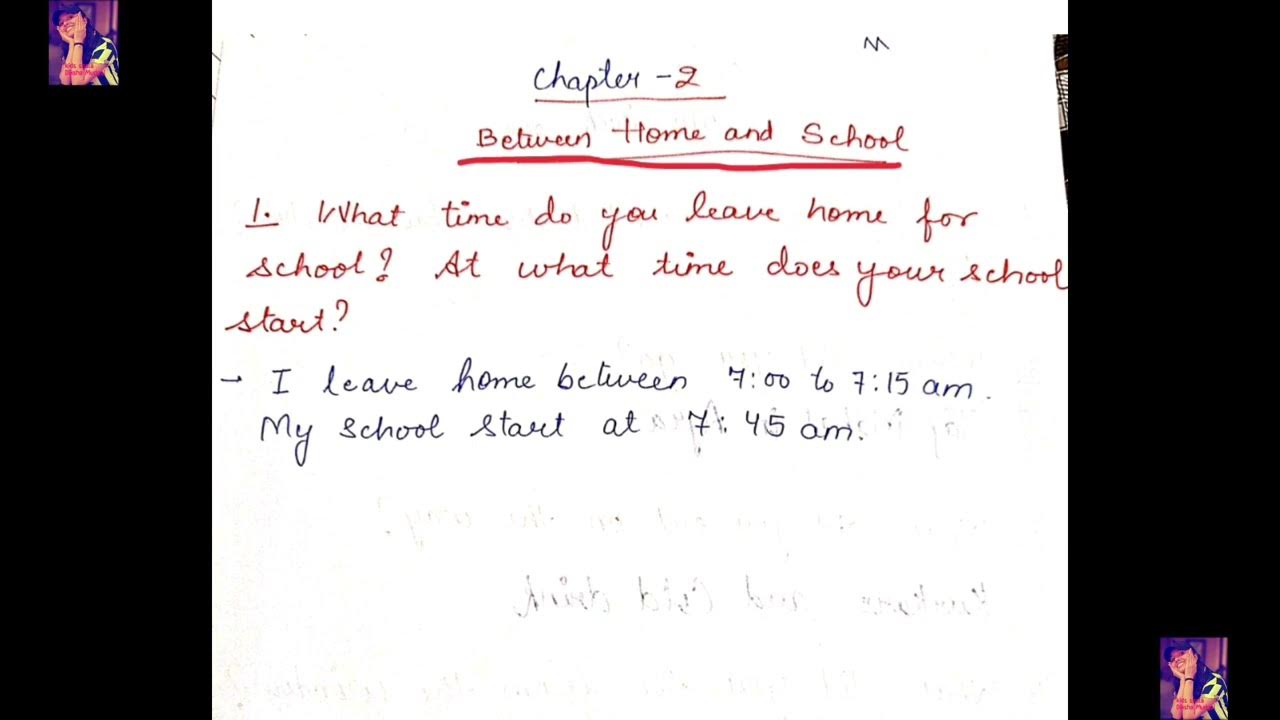 Chapter - 2
Between Home and School
1. What time do you leave home for
school? At what time does your school
start?
- I leave home between 7:00 to 7:15 am.
My school start at 7:45 am.